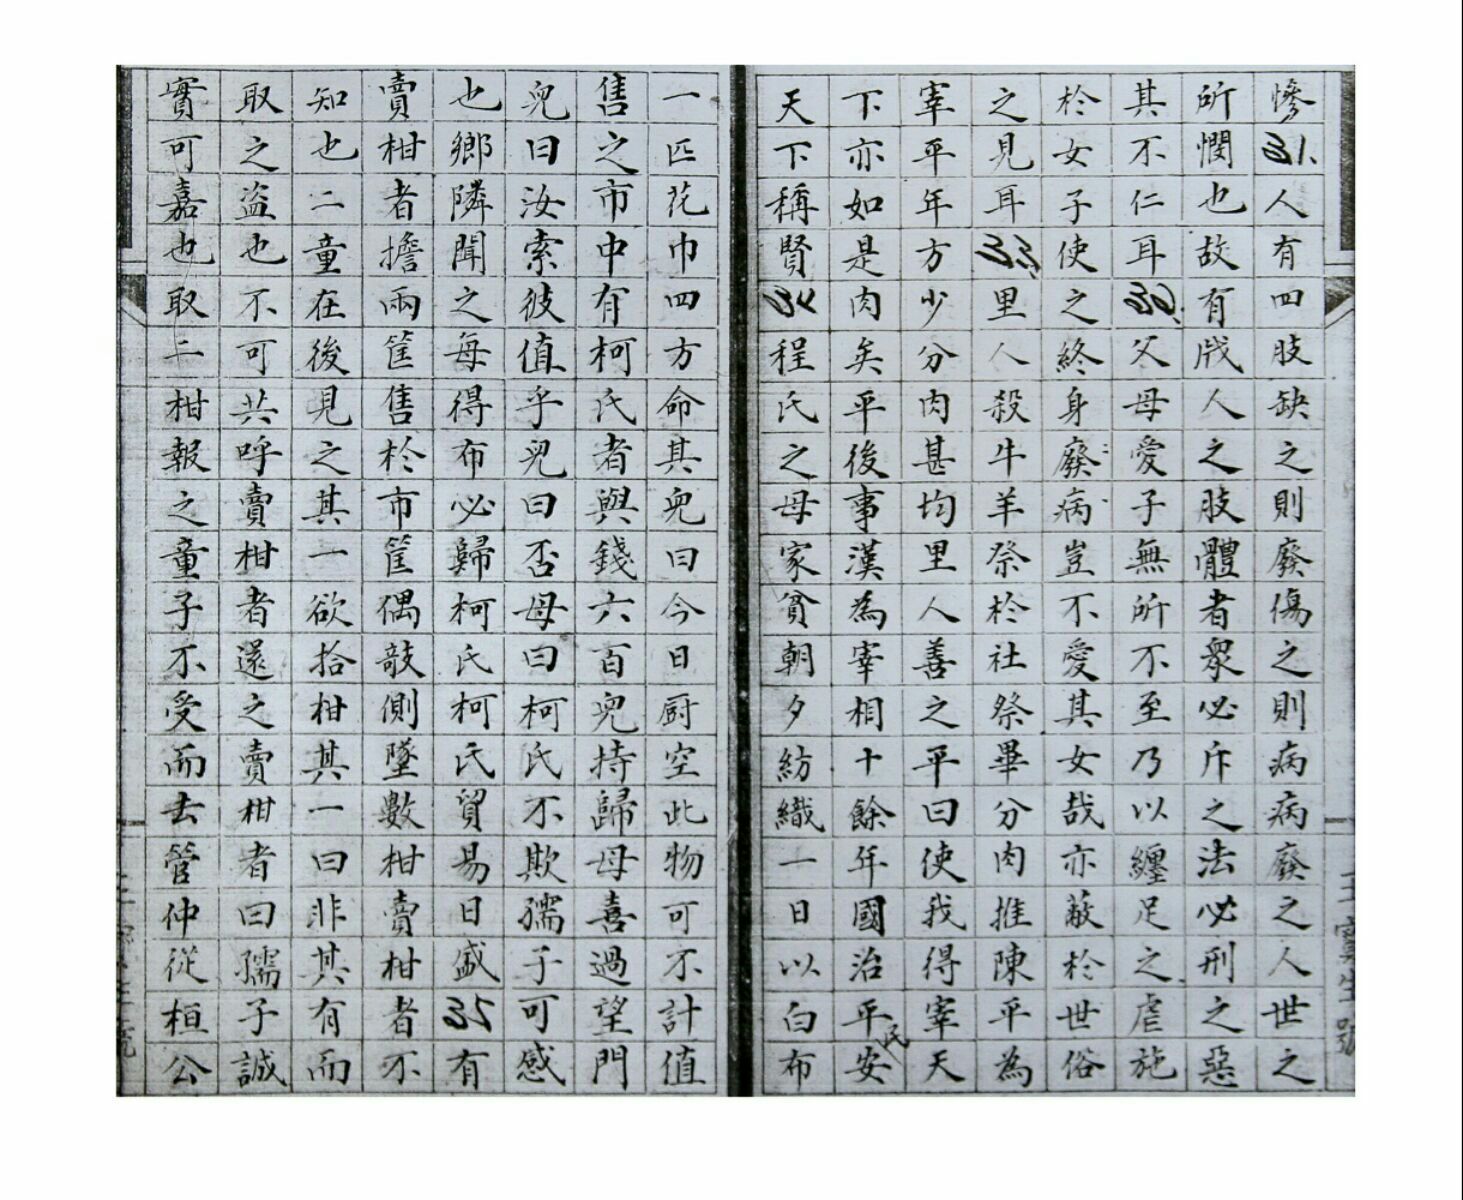 慘31.人有四肢缺之則廢傷之則病病廢之人世之
所憫也故有戕人之肢體者眾必斥之法必刑之惡
其不仁耳32.父母愛子無所不至乃以纏足之虐施
於女子使之終身廢病豈不愛其女哉亦蔽於世俗
之見耳33.里人殺牛羊祭於社祭畢分肉推陳平為
宰平年方少分肉甚均里人善之平曰使我得宰天
下亦如是肉矣平後事漢為宰相十餘年國治平安民
天下稱賢34程氏之母家貧朝夕紡織一日以白布
一匹花巾四方命其兒曰今日厨空此物可不計值
售之市中有柯氏者與錢六百兒持歸母喜過望門
兒曰汝索彼值乎兒曰否母曰柯氏不欺孺子可感
也鄉隣聞之每得布必歸柯氏柯氏貿易日盛35有
賣柑者擔兩筐售於市筐偶敧側墜數柑賣柑者不
知也二童在後見之其一欲拾柑其一曰非其有而
取之盜也不可共呼賣柑者還之賣柑者曰孺子誠
實可嘉也取二柑報之童子不受而去管仲從桓公